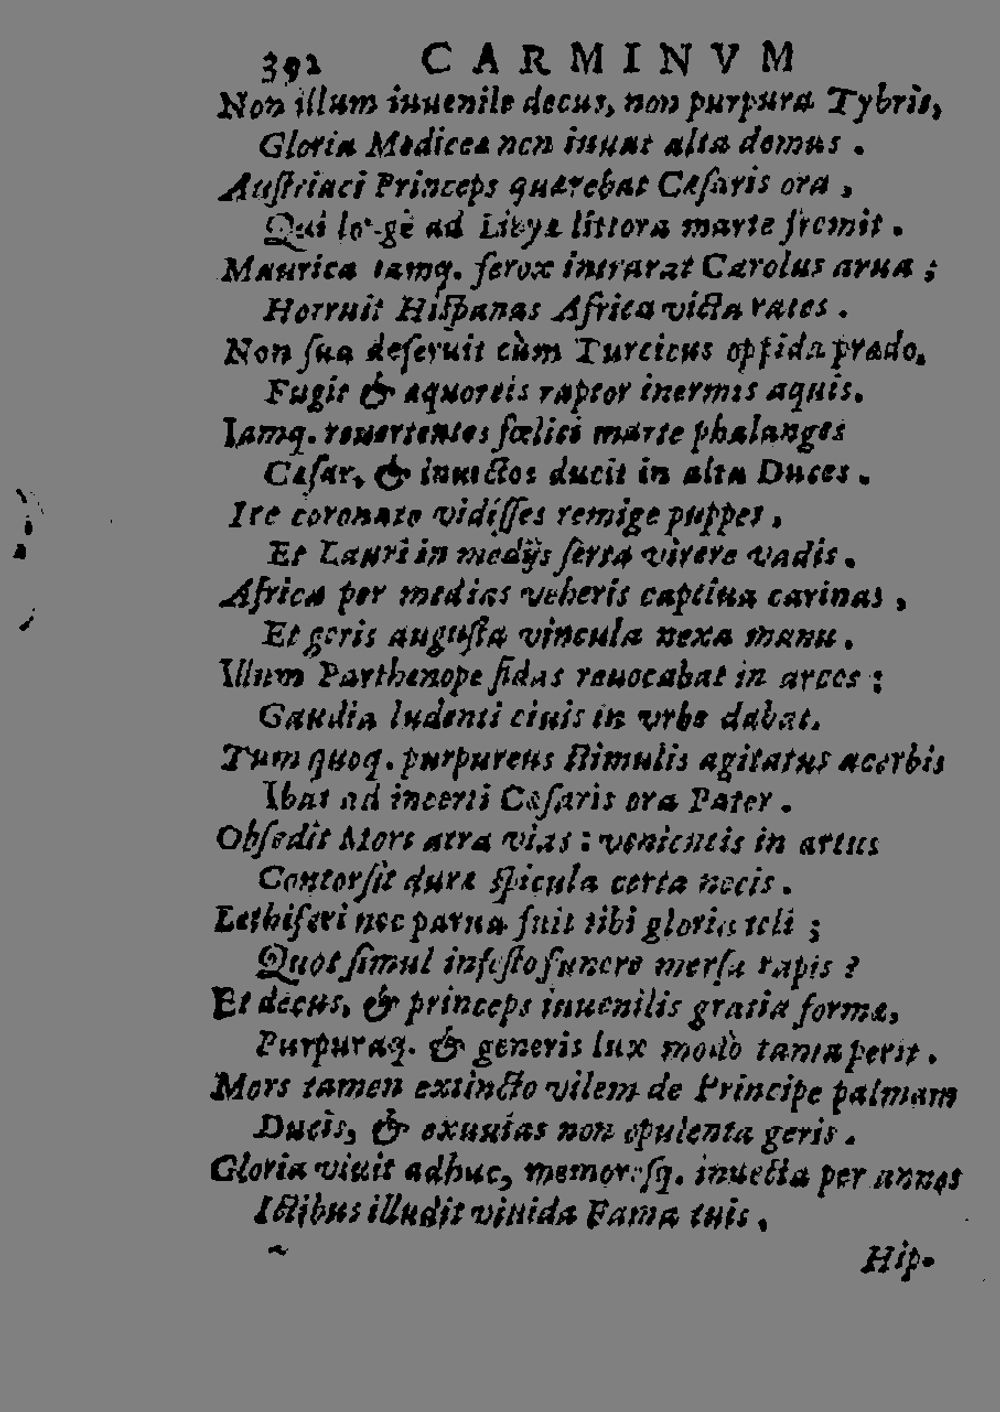 392 CARMINVM
Non illum iuuenile decus, non purpura Tybris,
Gloria Medicea non iuuat alta domus.
Austriaci Princeps quærebat Cæsaris ora,
Qui longè ad Libyæ littora marte fremit.
Maurica iamq. ferox intrarat Carolus arua;
Horruit Hispanas Africa victa rates.
Non sua deseruit cùm Turcicus oppida prædo,
Fugit & æquoreis raptor inermis aquis.
Iamq. reuertentes fœlici marte phalanges
Cæsar, & inuictos ducit in alta Duces.
Ire coronato vidisses remige puppes,
Et Lauri in medijs serta virere vadis.
Africa per medias veheris captiua carinas,
Et geris augusta vincula nexa manu.
Illum Parthenope fidas reuocabat in arces;
Gaudia ludenti ciuis in vrbe dabat.
Tum quoq. purpureus stimulis agitatus acerbis
Ibat ad incerti Cæsaris ora Pater.
Obsedit Mors atra vias: venientis in artus
Contorsit duræ spicula certa necis.
Lethiferi nec parua fuit tibi gloria teli;
Quot simul infesto funere mersa rapis?
Et decus, & princeps iuuenilis gratia formæ,
Purpuraq. & generis lux modò tanta perit.
Mors tamen extincto vilem de Principe palmam
Ducis, & exuuias non opulenta geris.
Gloria viuit adhuc, memoresq. inuecta per annos
Ictibus illudit viuida Fama tuis.
Hip-